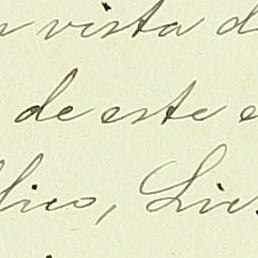 vista d
de este e
lico, Lic.